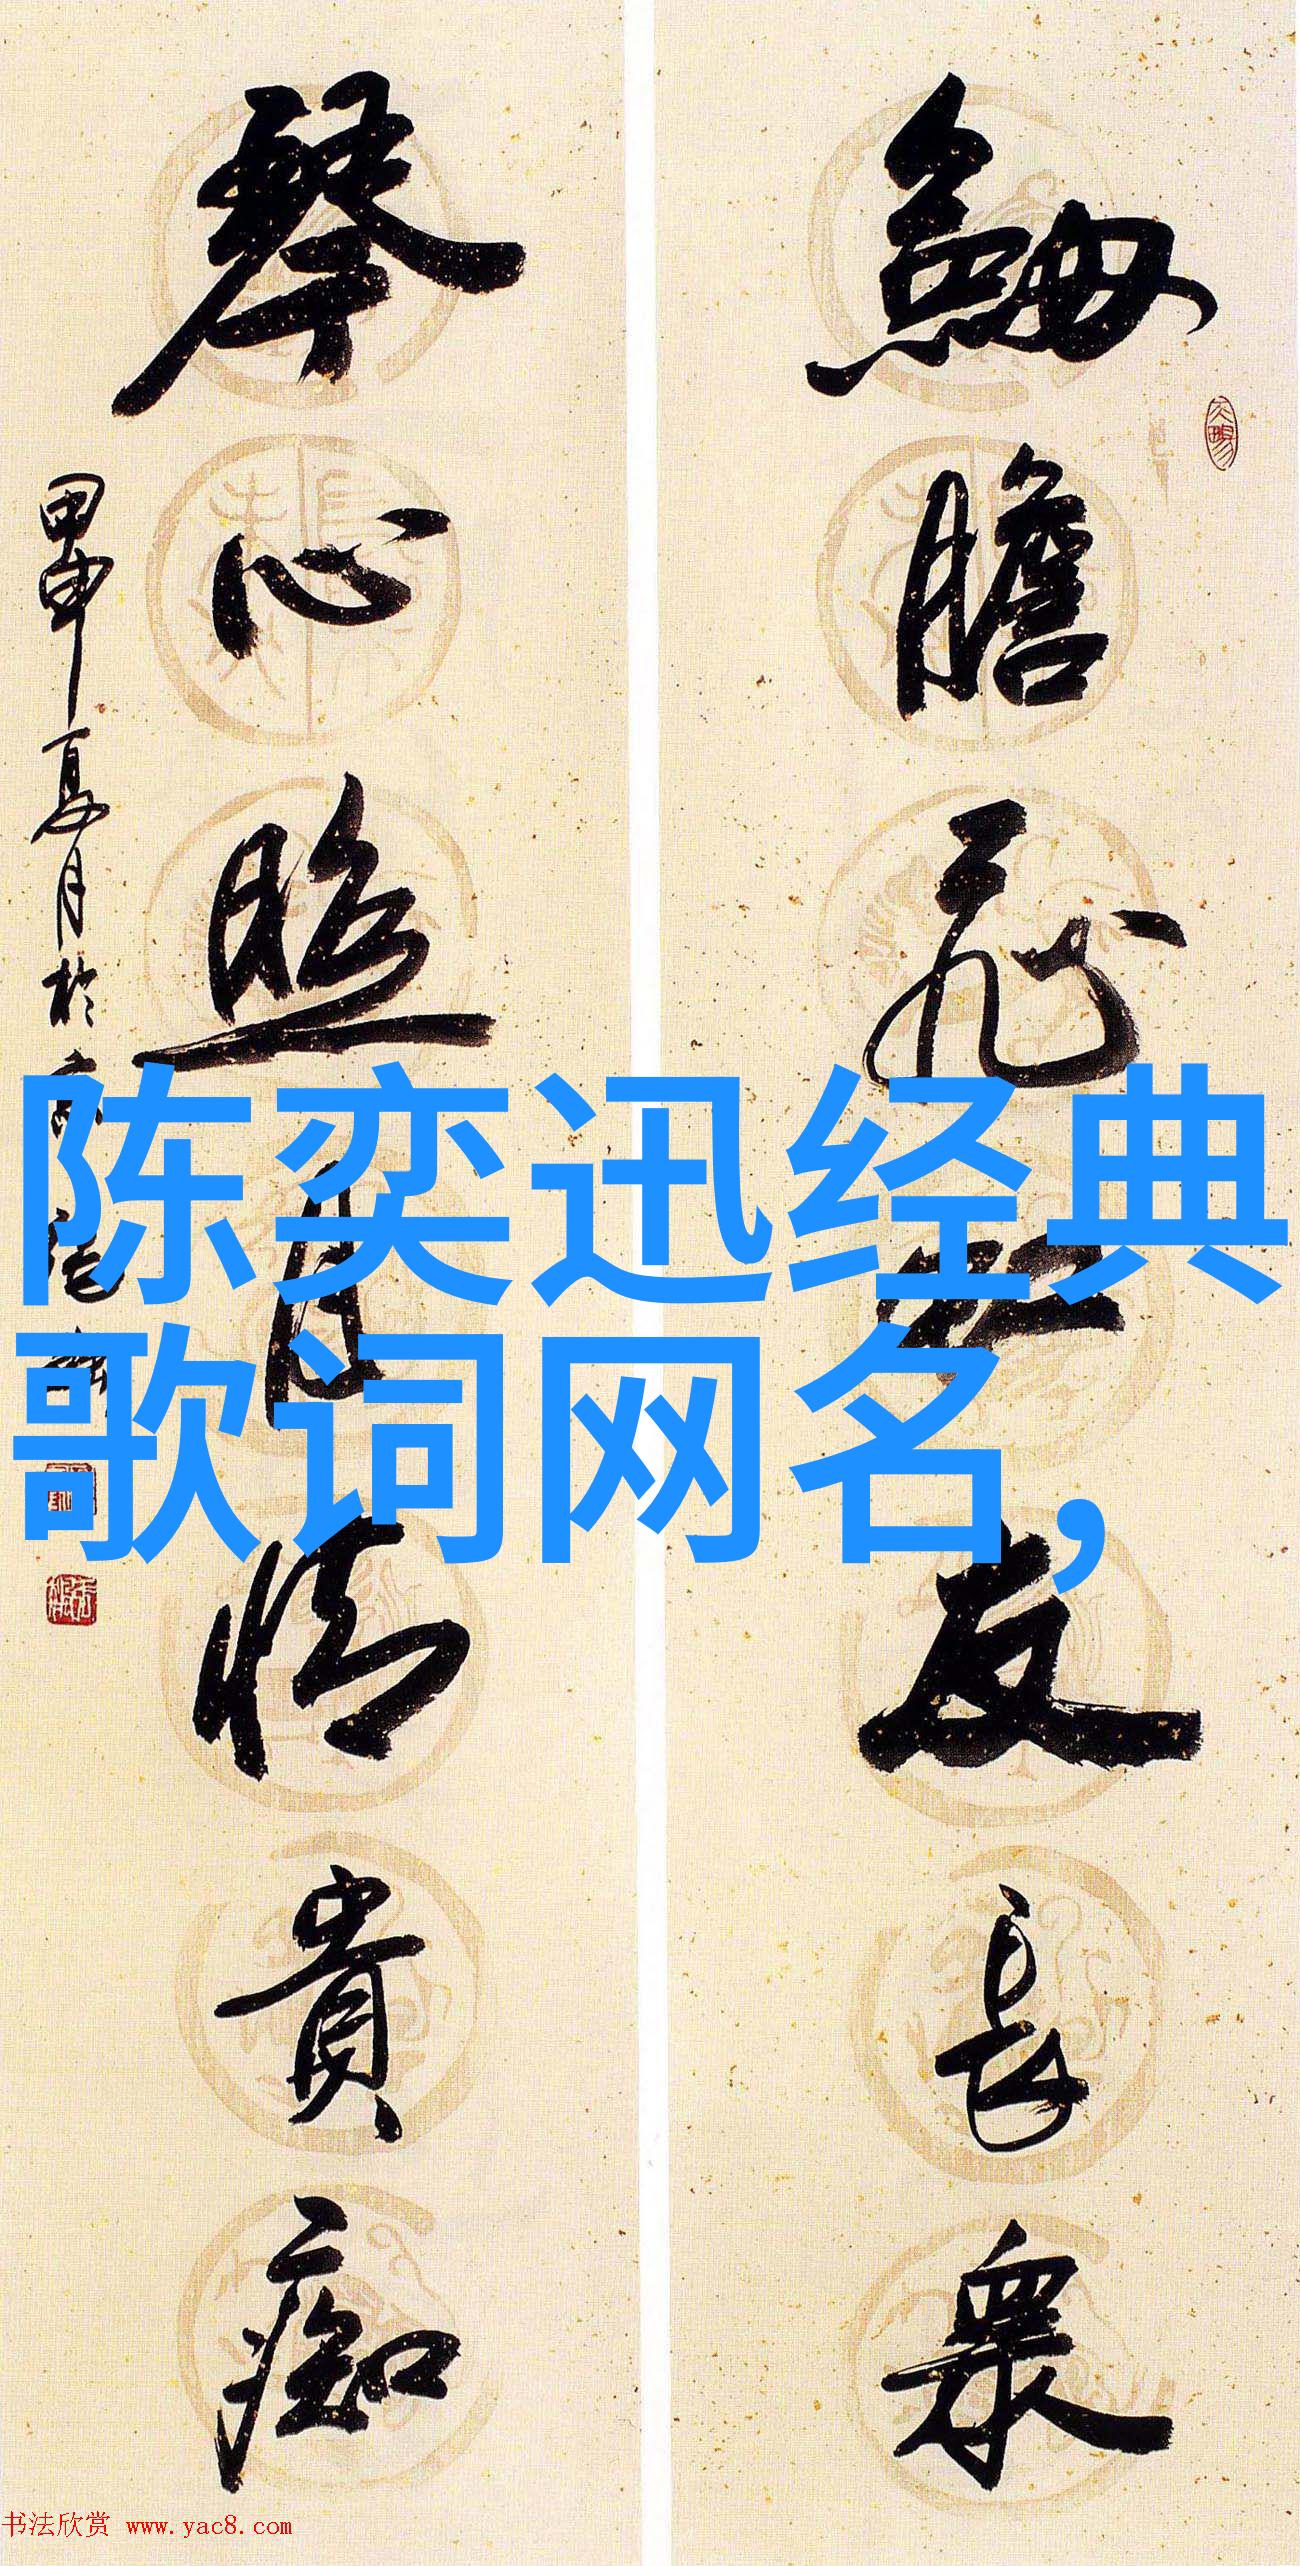 劍膽飛虹友長眾
琴心照月情貴痴
甲申夏月於
陈奕迅经典
歌词网名,
书法欣赏 www.yac8.com